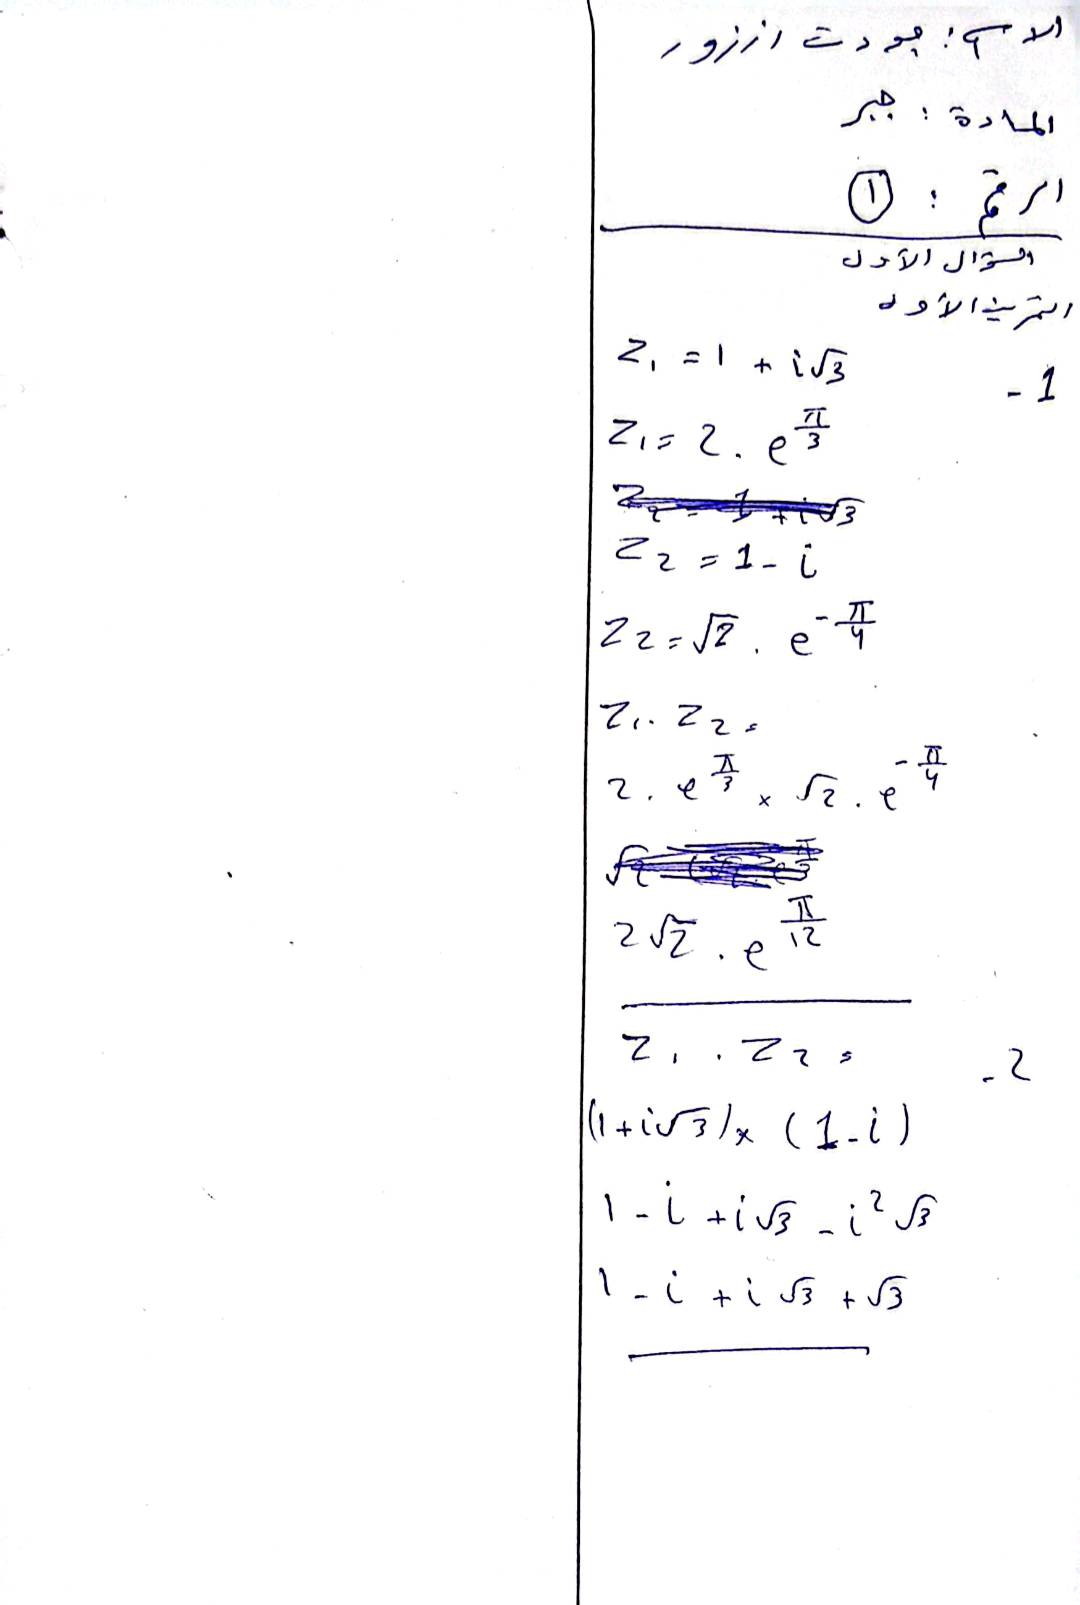 الاسم : جودت ازرور
المادة : جبر
الرقم : ①
السؤال الأول
التمرين الأول
1 - z₁ = 1 + i√3
z₁ = 2 . e^(π/3)
z₂ = 1 + i√3
z₂ = 1 - i
z₂ = √2 . e^(-π/4)
z₁ . z₂ =
2 . e^(π/3) × √2 . e^(-π/4)
2√2 . e^(π/12)
2 - z₁ . z₂ =
(1 + i√3) × (1 - i)
1 - i + i√3 - i²√3
1 - i + i√3 + √3